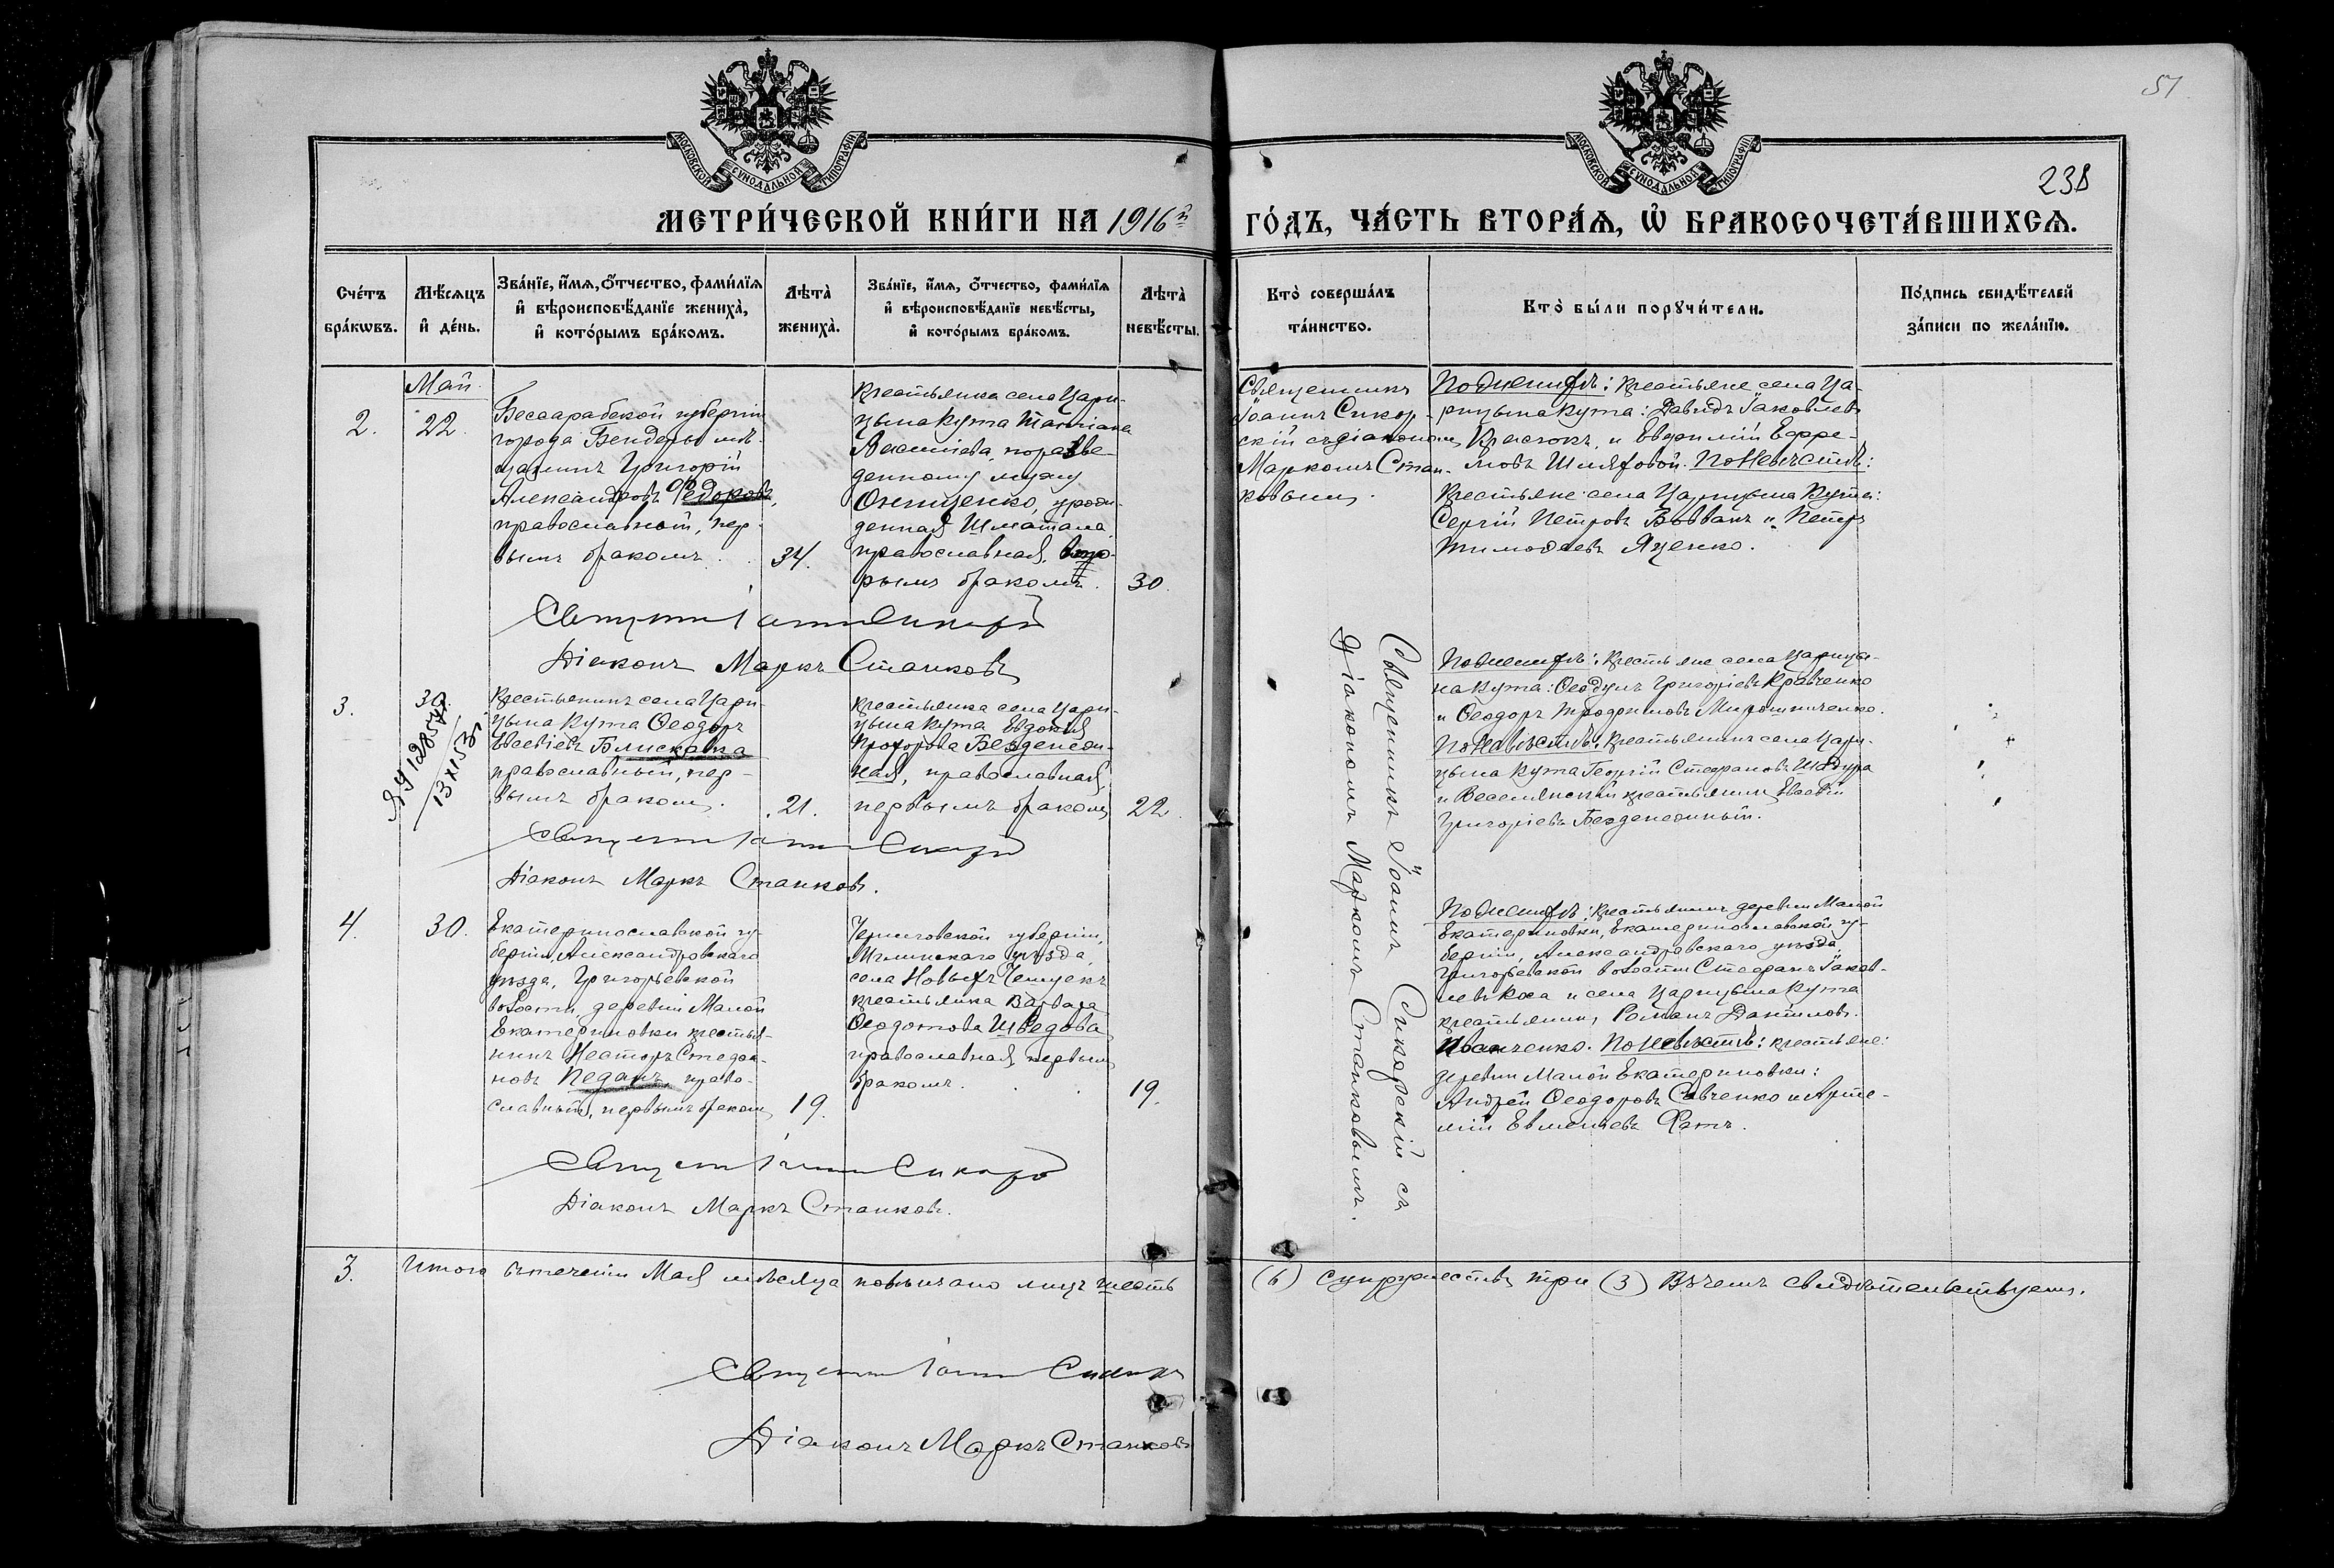 51
238
МОСКОВСКОЙ СѴНОДАЛЬНОЙ ТИПОГРАФІИ
МОСКОВСКОЙ СѴНОДАЛЬНОЙ ТИПОГРАФІИ
МЕТРИ́ЧЕСКОЙ КНИ́ГИ НА 1916й ГО́ДЪ, ЧА́СТЬ ВТОРА́Ѧ, Ѡ҆ БРАКОСОЧЕТА́ВШИХСѦ.
Сче́тъ бра́кѡвъ.
Мѣ́сѧцъ и҆ де́нь.
Зва́нїе, и҆́мѧ, ѻ҆́тчество, фами́лїѧ и҆ вѣроисповѣ́данїе жениха̀, и҆ кото́рымъ бра́комъ.
Лѣта̀ жениха̀.
Зва́нїе, и҆́мѧ, ѻ҆́тчество, фами́лїѧ и҆ вѣроисповѣ́данїе невѣ́сты, и҆ кото́рымъ бра́комъ.
Лѣта̀ невѣ́сты.
Кто̀ соверша́лъ та́инство.
Кто̀ бы́ли порꙋчи́тели.
По́дпись свидѣ́телей за́писи по жела́нїю.
Май.
2.
22.
Бессарабской губерніи
города Бендеры мѣ-
щанинъ Григорій
Александровъ Ѳедоровъ,
православный, пер-
вымъ бракомъ.
34.
Крестьянка села Цари-
цына Кута
разве-
денному мужу
Онищенко, урож-
денная Шматала,
православная, вто-
рымъ бракомъ.
30.
Священникъ
Іоаннъ Сикор-
скій съ діакономъ
Маркомъ Стан-
ковымъ.
По женихѣ: Крестьяне села Ца-
рицына Кута: Давидъ Іаковлевъ
Крючокъ, и Евфимій Ефре-
мовъ Шляховой. По невѣстѣ:
Крестьяне села Царицына Кута:
Сергій Петровъ Вовванъ и Петръ
Тимоѳеевъ Яценко.
Священникъ Іоаннъ Сикорскій
Діаконъ Маркъ Станковъ
3.
30.
ЯЧ 128547
13 X 153
Крестьянинъ села Цари-
цына Кута Ѳеодоръ
Евсевіевъ Блискавка
православный, пер-
вымъ бракомъ.
21.
Крестьянка села Цари-
цына Кута Евдокія
Прохорова Безденеж-
ная, православная,
первымъ бракомъ
22.
Священникъ Іоаннъ Сикорскій съ
Діакономъ Маркомъ Станковымъ.
По женихѣ: Крестьяне села Царицы-
на Кута: Ѳеодулъ Григоріевъ Кравченко
и Ѳеодоръ Трофимовъ Мирошниченко.
По невѣстѣ: Крестьянинъ села Цари-
цына Кута Георгій Стефановъ Шадура
и Веселянскій крестьянинъ Евсевій
Григоріевъ Безденежный.
Священникъ Іоаннъ Сикорскій
Діаконъ Маркъ Станковъ.
4.
30.
Екатеринославской гу-
берніи, Александровскаго
уѣзда, Григорьевской
волости, деревни Малой
Екатериновки крестья-
нинъ Несторъ Стефа-
новъ Педанъ, право-
славный, первымъ бракомъ
19.
Черниговской губерніи,
Мглинскаго уѣзда,
села Новыхъ Чешуекъ
крестьянка Варвара
Ѳеодотова Шведова
православная, первымъ
бракомъ.
19.
По женихѣ: Крестьянинъ деревни Малой
Екатериновки, Екатеринославской гу-
берніи, Александровскаго уѣзда,
Григорьевской волости Стефанъ Іаков-
левъ Коса и села Царицына Кута
крестьянинъ Романъ Даніиловъ
Иванченко. По невѣстѣ: крестьяне:
деревни Малой Екатериновки:
Андрей Ѳеодоровъ Савченко и Арте-
мій Евменіевъ
Священникъ Іоаннъ Сикорскій
Діаконъ Маркъ Станковъ.
3.
Итого въ теченіи Мая мѣсяца повѣнчано лицъ шесть (6) супружествъ три (3) Въ чемъ свидѣтельствуемъ.
Священникъ Іоаннъ Сикорскій
Діаконъ Маркъ Станковъ